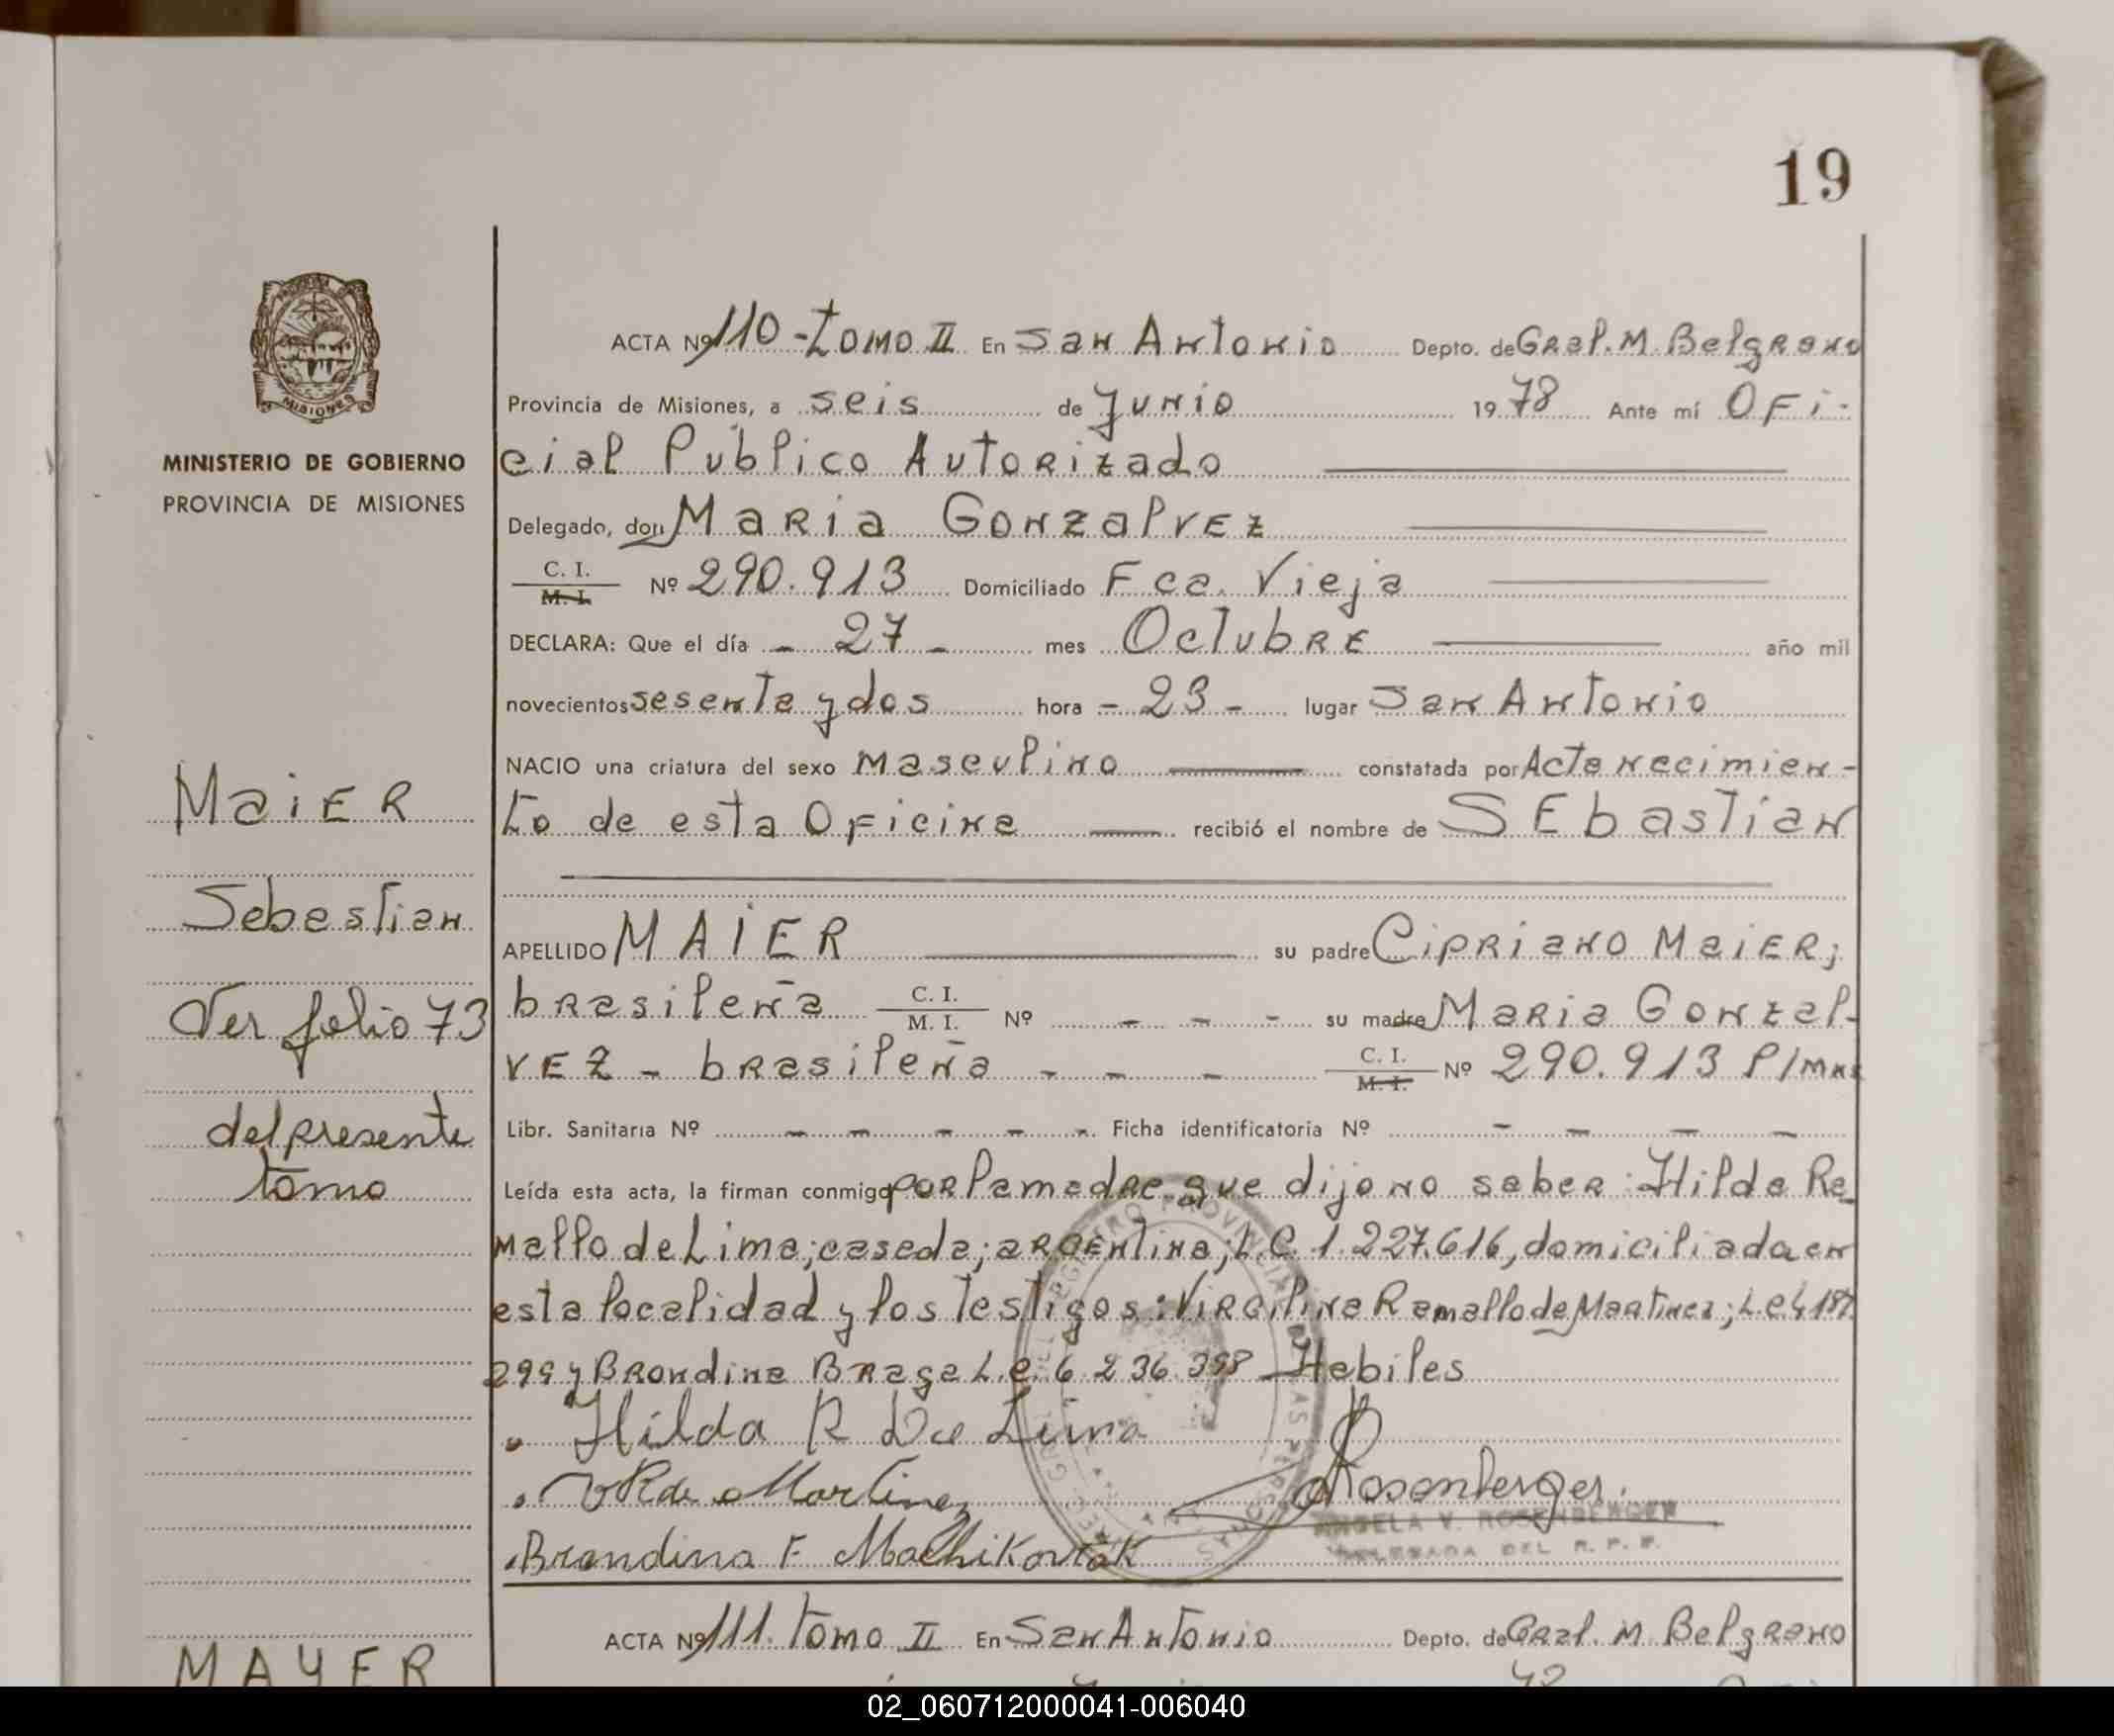 19
ACTA Nº 110 - Tomo II En San Antonio Depto. de Gral. M. Belgrano
Provincia de Misiones, a seis de Junio 19 78 Ante mí Ofi-
cial Público Autorizado
Delegado, don Maria Gonzalvez
C. I. M. I. Nº 290.913 Domiciliado Fca. Vieja
DECLARA: Que el día - 27 - mes Octubre año mil
novecientos sesenta y dos hora - 23 - lugar San Antonio
NACIO una criatura del sexo masculino constatada por Acta nacimien-
to de esta Oficina recibió el nombre de SEbastian
APELLIDO MAIER su padre Cipriano Maier;
brasileña C. I. M. I. Nº - - - su madre Maria Gonzal-
vez - brasileña - - - C. I. M. I. Nº 290.913 P/Mnes
Libr. Sanitaria Nº - - - - - Ficha identificatoria Nº - - - -
Leída esta acta, la firman conmigo por la madre que dijo no saber: Hilda Ra
mallo de Lima; casada; argentina, L.C. 1.227.616, domiciliada en
esta localidad y los testigos: Virgilina Ramallo de Martinez; L.C 4 187.
299 y Brondina Braga L.C. 6 236 398 Habiles
Hilda R De Lima
VR de Martinez
Brandina F. Machikoviak
Rosenberger.
ANGELA V. ROSENBERGER
DELEGADA DEL R. P. P.
MISIONES
MINISTERIO DE GOBIERNO
PROVINCIA DE MISIONES
Maier
Sebastian
Ver folio 73
del presente
tomo
ACTA Nº 111. Tomo II En San Antonio Depto. de Gral. M. Belgrano
MAYER
02_060712000041-006040